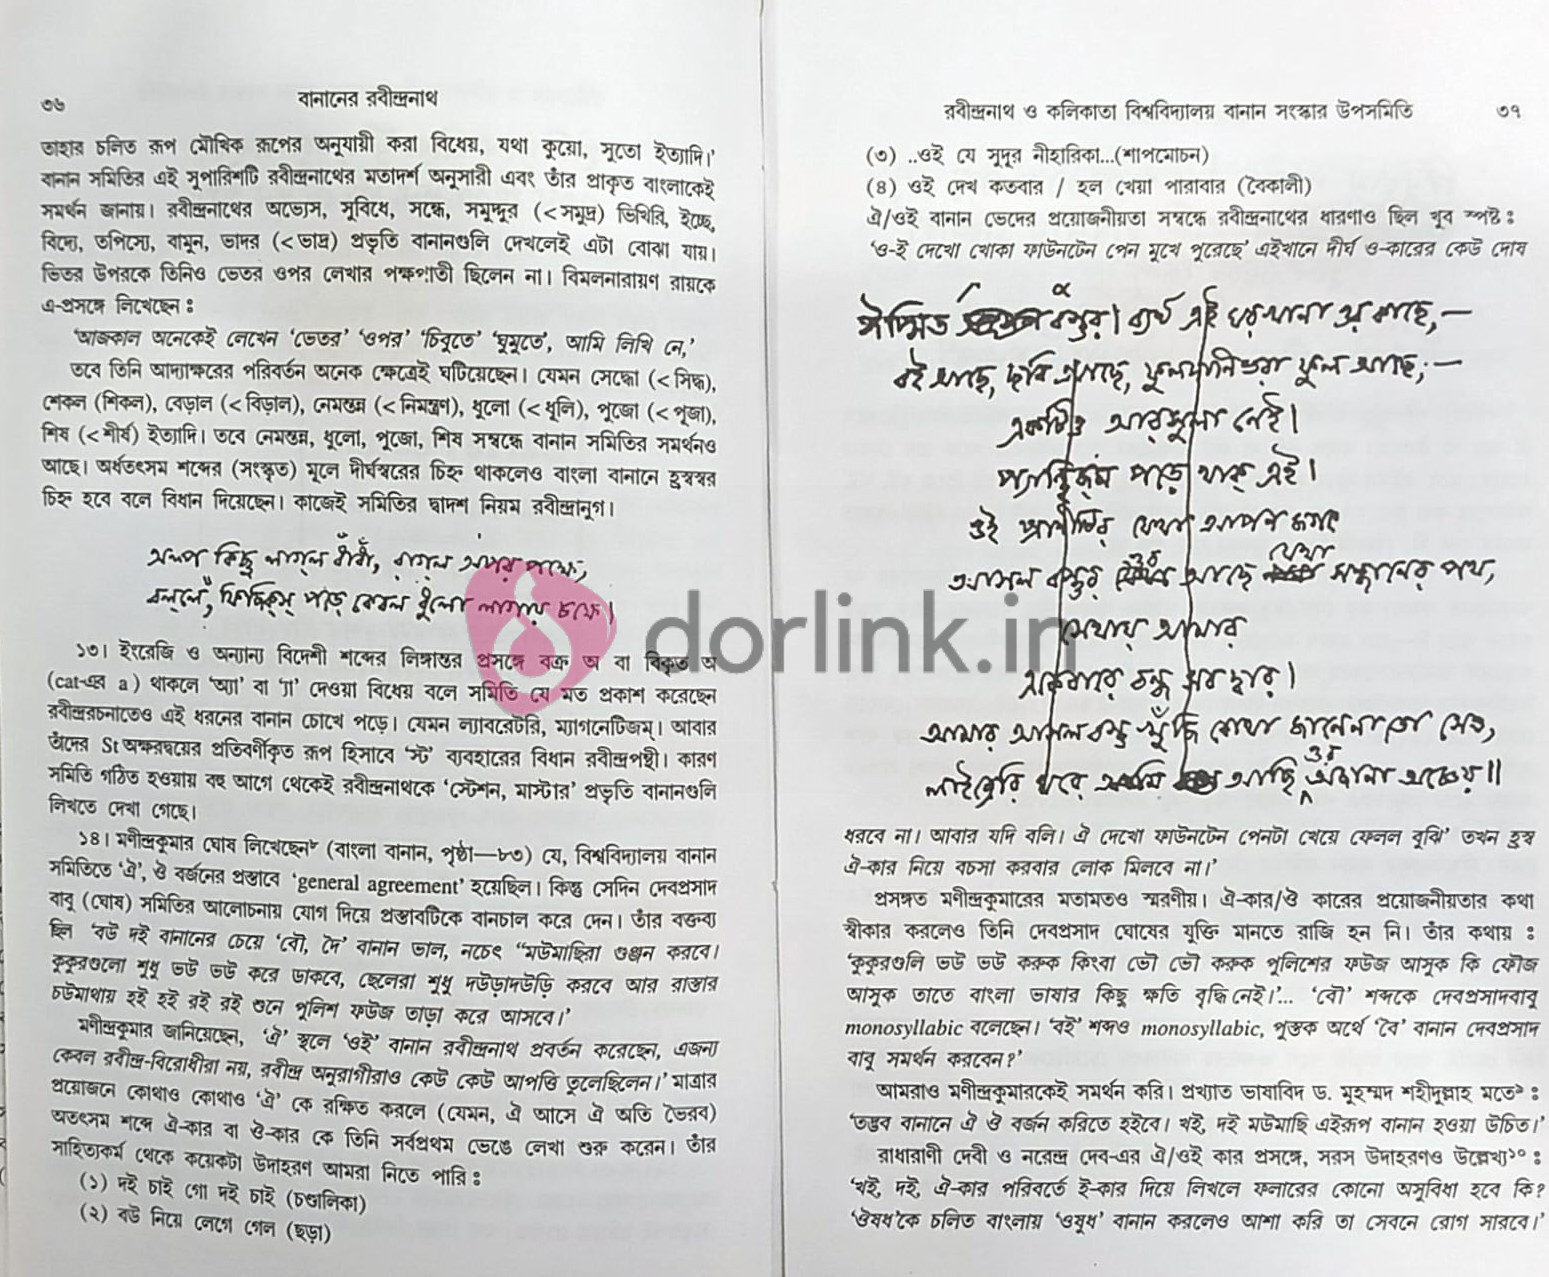 ৩৬
বানানের রবীন্দ্রনাথ
তাহার চলিত রূপ মৌখিক রূপের অনুযায়ী করা বিধেয়, যথা কুয়ো, সুতো ইত্যাদি।'
বানান সমিতির এই সুপারিশটি রবীন্দ্রনাথের মতাদর্শ অনুসারী এবং তাঁর প্রাকৃত বাংলাকেই
সমর্থন জানায়। রবীন্দ্রনাথের অভ্যেস, সুবিধে, সন্ধে, সমুদ্দুর (<সমুদ্র) ভিখিরি, ইচ্ছে,
বিদ্যে, তপিস্যে, বামুন, ভাদর (<ভাদ্র) প্রভৃতি বানানগুলি দেখলেই এটা বোঝা যায়।
ভিতর উপরকে তিনিও ভেতর ওপর লেখার পক্ষপাতী ছিলেন না। বিমলনারায়ণ রায়কে
এ-প্রসঙ্গে লিখেছেন :
'আজকাল অনেকেই লেখেন 'ভেতর' 'ওপর' 'চিবুতে' 'ঘুমুতে', আমি লিখি নে,'
তবে তিনি আদ্যাক্ষরের পরিবর্তন অনেক ক্ষেত্রেই ঘটিয়েছেন। যেমন সেদ্ধো (<সিদ্ধ),
শেকল (শিকল), বেড়াল (<বিড়াল), নেমন্তন্ন (<নিমন্ত্রণ), ধুলো (<ধূলি), পুজো (<পূজা),
শিষ (<শীর্ষ) ইত্যাদি। তবে নেমন্তন্ন, ধুলো, পুজো, শিষ সম্বন্ধে বানান সমিতির সমর্থনও
আছে। অর্ধতৎসম শব্দের (সংস্কৃত) মূলে দীর্ঘস্বরের চিহ্ন থাকলেও বাংলা বানানে হ্রস্বস্বর
চিহ্ন হবে বলে বিধান দিয়েছেন। কাজেই সমিতির দ্বাদশ নিয়ম রবীন্দ্রানুগ।
অল্প কিছু লাগ্‌ল ধাঁধাঁ, রাগ্‌ল অপর পক্ষে,
বল্‌লে, "ফিজিক্‌স্‌ পড়ে কেবল ধুলো লাগায় চক্ষে।
dorlink.in
১৩। ইংরেজি ও অন্যান্য বিদেশী শব্দের লিঙ্গান্তর প্রসঙ্গে বক্র অ বা বিকৃত অ
(cat-এর a) থাকলে 'অ্যা' বা '্যা' দেওয়া বিধেয় বলে সমিতি যে মত প্রকাশ করেছেন
রবীন্দ্ররচনাতেও এই ধরনের বানান চোখে পড়ে। যেমন ল্যাবরেটরি, ম্যাগনেটিজম্। আবার
তাঁদের St অক্ষরদ্বয়ের প্রতিবর্ণীকৃত রূপ হিসাবে 'স্ট' ব্যবহারের বিধান রবীন্দ্রপন্থী। কারণ
সমিতি গঠিত হওয়ায় বহু আগে থেকেই রবীন্দ্রনাথকে 'স্টেশন, মাস্টার' প্রভৃতি বানানগুলি
লিখতে দেখা গেছে।
১৪। মণীন্দ্রকুমার ঘোষ লিখেছেন৮ (বাংলা বানান, পৃষ্ঠা—৮৩) যে, বিশ্ববিদ্যালয় বানান
সমিতিতে 'ঐ', ঔ বর্জনের প্রস্তাবে 'general agreement' হয়েছিল। কিন্তু সেদিন দেবপ্রসাদ
বাবু (ঘোষ) সমিতির আলোচনায় যোগ দিয়ে প্রস্তাবটিকে বানচাল করে দেন। তাঁর বক্তব্য
ছিল 'বউ দই বানানের চেয়ে 'বৌ, দৈ' বানান ভাল, নচেৎ "মউমাছিরা গুঞ্জন করবে।
কুকুরগুলো শুধু ভউ ভউ করে ডাকবে, ছেলেরা শুধু দউড়াদউড়ি করবে আর রাস্তার
চউমাথায় হই হই রই রই শুনে পুলিশ ফউজ তাড়া করে আসবে।'
মণীন্দ্রকুমার জানিয়েছেন, 'ঐ' স্থলে 'ওই' বানান রবীন্দ্রনাথ প্রবর্তন করেছেন, এজন্য
কেবল রবীন্দ্র-বিরোধীরা নয়, রবীন্দ্র অনুরাগীরাও কেউ কেউ আপত্তি তুলেছিলেন।' মাত্রার
প্রয়োজনে কোথাও কোথাও 'ঐ' কে রক্ষিত করলে (যেমন, ঐ আসে ঐ অতি ভৈরব)
অতৎসম শব্দে ঐ-কার বা ঔ-কার কে তিনি সর্বপ্রথম ভেঙে লেখা শুরু করেন। তাঁর
সাহিত্যকর্ম থেকে কয়েকটা উদাহরণ আমরা নিতে পারি :
(১) দই চাই গো দই চাই (চণ্ডালিকা)
(২) বউ নিয়ে লেগে গেল (ছড়া)
রবীন্দ্রনাথ ও কলিকাতা বিশ্ববিদ্যালয় বানান সংস্কার উপসমিতি
৩৭
(৩) ..ওই যে সুদূর নীহারিকা...(শাপমোচন)
(৪) ওই দেখ কতবার / হল খেয়া পারাবার (বৈকালী)
ঐ/ওই বানান ভেদের প্রয়োজনীয়তা সম্বন্ধে রবীন্দ্রনাথের ধারণাও ছিল খুব স্পষ্ট :
'ও-ই দেখো খোকা ফাউনটেন পেন মুখে পুরেছে' এইখানে দীর্ঘ ও-কারের কেউ দোষ
ঈপ্সিত বস্তুর। ব্যর্থ এই ঘরখানা কাছে,—
বই আছে, ছবি আছে, ফুলদানিভরা ফুল আছে;—
একটিও আরসুলা নেই।
পড়ে থাক্ এই।
ওই প্রাণীটির যেথা আপন জগৎ
আসল বস্তুর ওর আছে যেথা সন্ধানের পথ,
সেথায় আমার
একেবারে রুদ্ধ সব দ্বার।
আমার আসল বস্তু খুঁজি কোথা জানেনা তো সেও,
লাইব্রেরি ঘরে আছি ওর অজানা অজ্ঞেয়॥
ধরবে না। আবার যদি বলি। ঐ দেখো ফাউনটেন পেনটা খেয়ে ফেলল বুঝি' তখন হ্রস্ব
ঐ-কার নিয়ে বচসা করবার লোক মিলবে না।'
প্রসঙ্গত মণীন্দ্রকুমারের মতামতও স্মরণীয়। ঐ-কার/ঔ কারের প্রয়োজনীয়তার কথা
স্বীকার করলেও তিনি দেবপ্রসাদ ঘোষের যুক্তি মানতে রাজি হন নি। তাঁর কথায় :
'কুকুরগুলি ভউ ভউ করুক কিংবা ভৌ ভৌ করুক পুলিশের ফউজ আসুক কি ফৌজ
আসুক তাতে বাংলা ভাষার কিছু ক্ষতি বৃদ্ধি নেই।'... 'বৌ' শব্দকে দেবপ্রসাদবাবু
monosyllabic বলেছেন। 'বই' শব্দও monosyllabic, পুস্তক অর্থে 'বৈ' বানান দেবপ্রসাদ
বাবু সমর্থন করবেন?'
আমরাও মণীন্দ্রকুমারকেই সমর্থন করি। প্রখ্যাত ভাষাবিদ ড. মুহম্মদ শহীদুল্লাহ মতে৯ :
'তদ্ভব বানানে ঐ ঔ বর্জন করিতে হইবে। খই, দই মউমাছি এইরূপ বানান হওয়া উচিত।'
রাধারাণী দেবী ও নরেন্দ্র দেব-এর ঐ/ওই কার প্রসঙ্গে, সরস উদাহরণও উল্লেখ্য১০ :
'খই, দই, ঐ-কার পরিবর্তে ই-কার দিয়ে লিখলে ফলারের কোনো অসুবিধা হবে কি?
'ঔষধ'কে চলিত বাংলায় 'ওষুধ' বানান করলেও আশা করি তা সেবনে রোগ সারবে।'